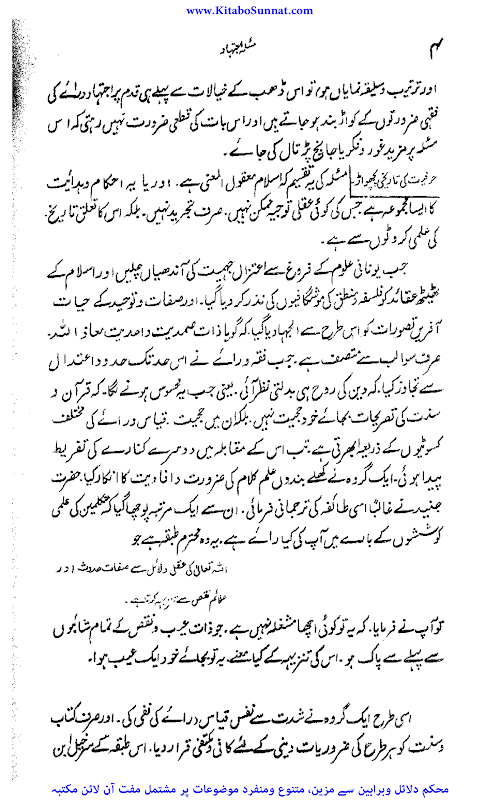 www.KitaboSunnat.com
۴ مسئلہ اجتہاد
اور ترتیب و سلیقہ نمایاں ہو، تو اس ڈھب کے خیالات سے پہلے ہی قدم پر اجتہاد و رائے کی
فقہی ضرورتوں کے کواڑ بند ہو جاتے ہیں اور اس بات کی قطعی ضرورت نہیں رہتی کہ اس
مسئلہ پر مزید غور و فکر یا جانچ پڑتال کی جائے۔
حرفیت کی تاریخی پچھواڑ مسئلہ کی یہ تقسیم کہ اسلام معقول المعنی ہے۔ اور یا یہ احکام و ہدایت
کا ایسا مجموعہ ہے جس کی کوئی عقلی توجیہ ممکن نہیں۔ صرف تجرید نہیں۔ بلکہ اس کا تعلق تاریخ
کی علمی کروٹوں سے ہے۔
جب یونانی علوم کے فروغ سے اعتزال و جہمیت کی آندھیاں چلیں اور اسلام کے
ٹھیٹھ عقائد کو فلسفہ و منطق کی موشگافیوں کی نذر کر دیا گیا۔ اور صفات و توحید کے حیات
آفریں تصورات کو اس طرح سے الجھا دیا گیا، کہ گویا ذات صمدیت و احدیت معاذ اللہ۔
صرف سوالب سے متصف ہے۔ جب فقہ و رائے نے اس حد تک حدود اعتدال
سے تجاوز کیا۔ کہ دین کی روح ہی بدلتی نظر آئی۔ یعنی جب یہ محسوس ہونے لگا۔ کہ قرآن و
سنت کی تصریحات بجائے خود حجت نہیں۔ بلکہ ان میں حجیت۔ قیاس و رائے کی مختلف
کسوٹیوں کے ذریعہ ابھرتی ہے تب اس کے مقابلہ میں دوسرے کنارے کی تفریط
پیدا ہوئی۔ ایک گروہ نے کھلے بندوں علم کلام کی ضرورت و افادیت کا انکار کیا۔ حضرت
جنید نے غالباً اسی طائفہ کی ترجمانی فرمائی۔ ان سے ایک مرتبہ پوچھا گیا کہ متکلمین کی علمی
کوششوں کے بارے میں آپ کی کیا رائے ہے۔ یہ وہ محترم طبقہ ہے جو
اللہ تعالیٰ کی عقلی دلائل سے صفات حدوث اور
علائم نقص سے تنزیہہ کرتا ہے۔
تو آپ نے فرمایا۔ کہ یہ تو کوئی اچھا مشغلہ نہیں ہے۔ جو ذات عیب و نقص کے تمام شائبوں
سے پہلے سے پاک ہو۔ اس کی تنزیہہ کے کیا معنے۔ یہ تو بجائے خود ایک عیب ہوا۔
اسی طرح ایک گروہ نے شدت سے نفس قیاس و رائے کی نفی کی۔ اور صرف کتاب
و سنت کو ہر طرح کی ضروریات دینی کے لئے کافی و مکتفی قرار دیا۔ اس طبقہ کے سرخیل ابن
محکم دلائل وبراہین سے مزین، متنوع ومنفرد موضوعات پر مشتمل مفت آن لائن مکتبہ